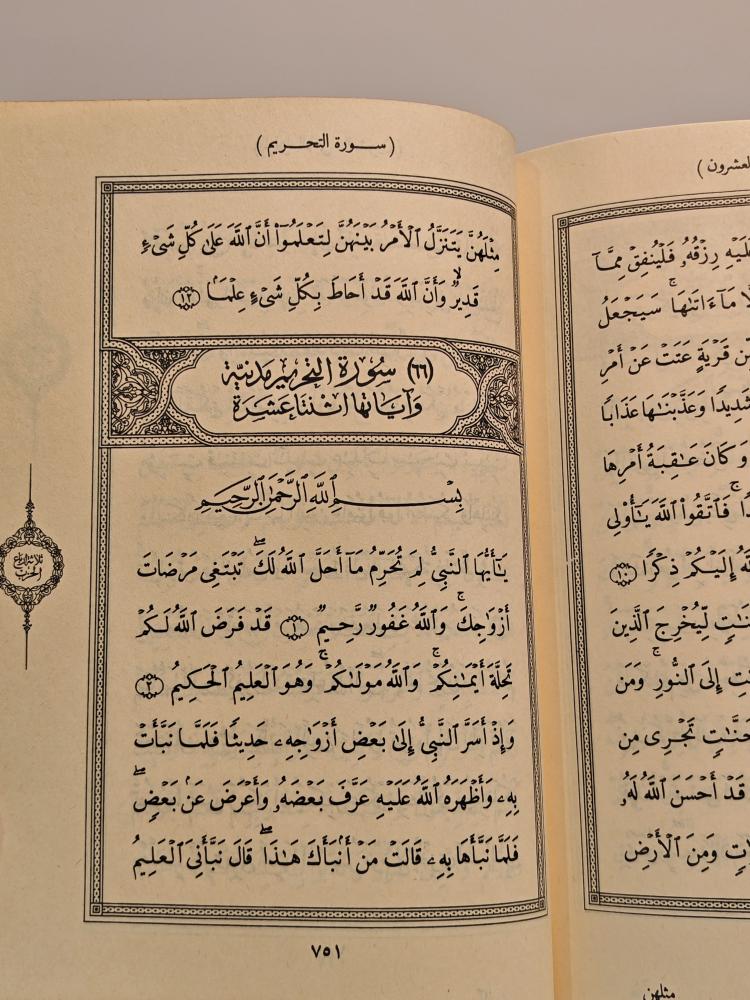 لعشرون )
عَلَيْهِ رِزْقُهُۥ فَلْيُنفِقْ مِمَّآ
مَآ ءَاتَىٰهَا ۚ سَيَجْعَلُ
مِّن قَرْيَةٍ عَتَتْ عَنْ أَمْرِ
شَدِيدًا وَعَذَّبْنَٰهَا عَذَابًا
وَكَانَ عَٰقِبَةُ أَمْرِهَا
فَٱتَّقُوا۟ ٱللَّهَ يَٰٓأُو۟لِى
إِلَيْكُمْ ذِكْرًا ﴿١٠﴾
لِّيُخْرِجَ ٱلَّذِينَ
إِلَى ٱلنُّورِ ۚ وَمَن
جَنَّٰتٍ تَجْرِى مِن
قَدْ أَحْسَنَ ٱللَّهُ لَهُۥ
وَمِنَ ٱلْأَرْضِ
مثلهن
( سورة التحريم )
مِثْلَهُنَّ يَتَنَزَّلُ ٱلْأَمْرُ بَيْنَهُنَّ لِتَعْلَمُوٓا۟ أَنَّ ٱللَّهَ عَلَىٰ كُلِّ شَىْءٍ
قَدِيرٌ ۙ وَأَنَّ ٱللَّهَ قَدْ أَحَاطَ بِكُلِّ شَىْءٍ عِلْمًۢا ﴿١٢﴾
(٦٦) سُورَة التحريم مَدنيّة
وَآيَاتها اثْنَتَا عَشرَة
بِسْمِ ٱللَّهِ ٱلرَّحْمَٰنِ ٱلرَّحِيمِ
يَٰٓأَيُّهَا ٱلنَّبِىُّ لِمَ تُحَرِّمُ مَآ أَحَلَّ ٱللَّهُ لَكَ ۖ تَبْتَغِى مَرْضَاتَ
أَزْوَٰجِكَ ۚ وَٱللَّهُ غَفُورٌ رَّحِيمٌ ﴿١﴾ قَدْ فَرَضَ ٱللَّهُ لَكُمْ
تَحِلَّةَ أَيْمَٰنِكُمْ ۚ وَٱللَّهُ مَوْلَىٰكُمْ ۖ وَهُوَ ٱلْعَلِيمُ ٱلْحَكِيمُ ﴿٢﴾
وَإِذْ أَسَرَّ ٱلنَّبِىُّ إِلَىٰ بَعْضِ أَزْوَٰجِهِۦ حَدِيثًا فَلَمَّا نَبَّأَتْ
بِهِۦ وَأَظْهَرَهُ ٱللَّهُ عَلَيْهِ عَرَّفَ بَعْضَهُۥ وَأَعْرَضَ عَنۢ بَعْضٍ ۖ
فَلَمَّا نَبَّأَهَا بِهِۦ قَالَتْ مَنْ أَنۢبَأَكَ هَٰذَا ۖ قَالَ نَبَّأَنِىَ ٱلْعَلِيمُ
ثلاثة أرباع
الحزب
٧٥١